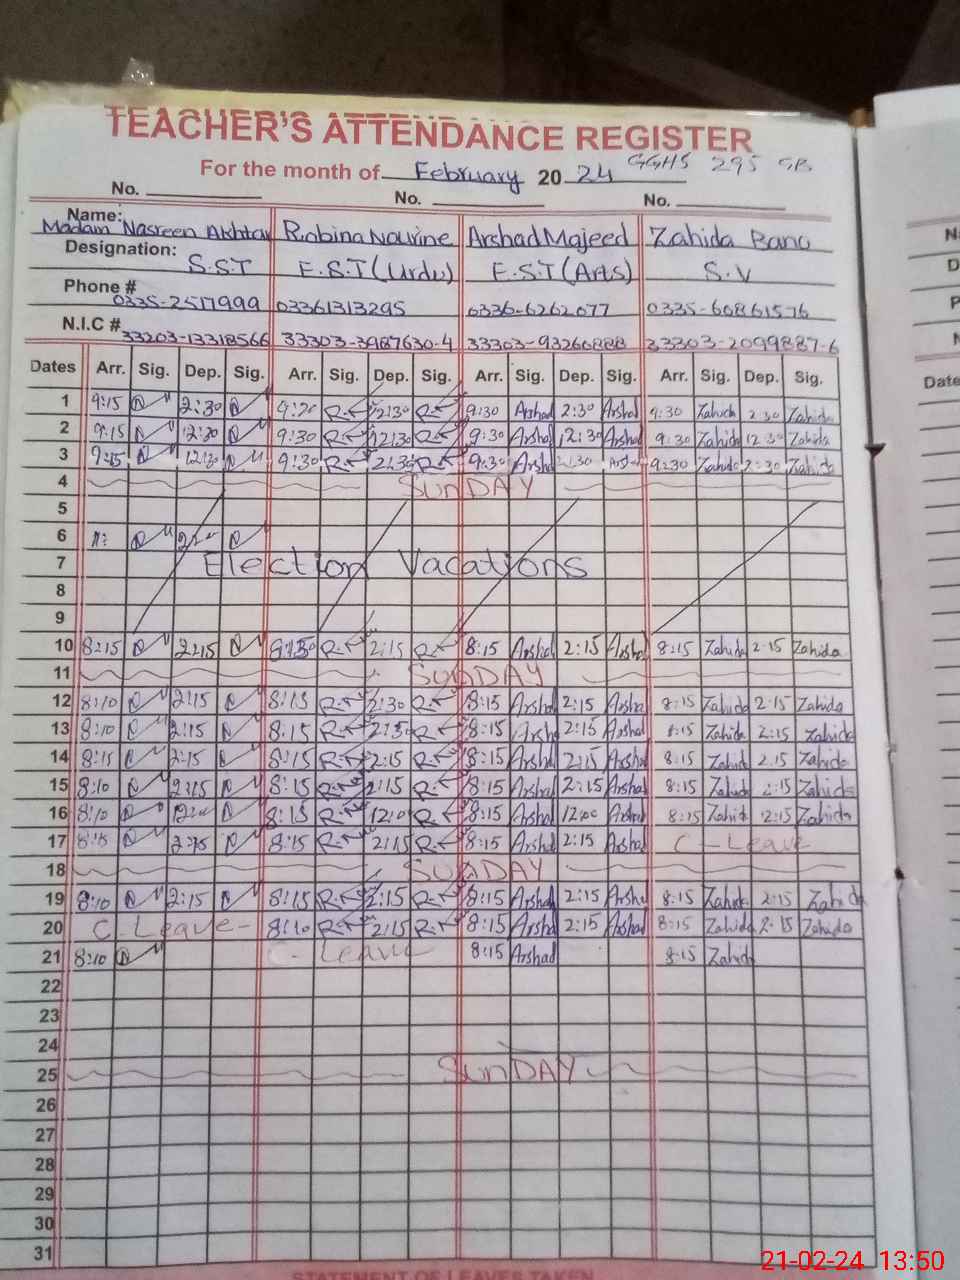 TEACHER'S ATTENDANCE REGISTER
For the month of February 20 24 GGHS 295 GB
No. No. No.
Name: Madam Nasreen Akhtar Robina Nourine Arshad Majeed Zahida Bano
Designation: S.S.T E.S.T (Urdu) E.S.T (Arts) S.V
Phone # 0335-2517999 03361313295 0336-6262077 0335-60861576
N.I.C # 33203-13318566 33303-3987630-4 33303-93260888 33303-2099887-6
Dates Arr. Sig. Dep. Sig. Arr. Sig. Dep. Sig. Arr. Sig. Dep. Sig. Arr. Sig. Dep. Sig.
1 9:15 2:30 9:20 12:30 9:30 Arshad 2:30 Arshad 9:30 Zahida 2:30 Zahida
2 9:15 12:30 9:30 12:30 9:30 Arshad 12:30 Arshad 9:30 Zahida 12:30 Zahida
3 9:15 12:30 9:30 2:30 9:30 Arshad 2:30 9:30 Zahida 2:30 Zahida
4 SUNDAY
5
6
7 Election Vacations
8
9
10 8:15 2:15 2:15 8:15 Arshad 2:15 Arshad 8:15 Zahida 2:15 Zahida
11 SUNDAY
12 8:10 2:15 8:15 2:30 8:15 Arshad 2:15 Arshad 8:15 Zahida 2:15 Zahida
13 8:10 2:15 8:15 2:30 8:15 Arshad 2:15 Arshad 8:15 Zahida 2:15 Zahida
14 8:15 2:15 8:15 2:15 8:15 Arshad 2:15 Arshad 8:15 Zahida 2:15 Zahida
15 8:10 2:15 8:15 2:15 8:15 Arshad 2:15 Arshad 8:15 Zahida 2:15 Zahida
16 8:10 8:15 8:15 Arshad 12:00 Arshad 8:15 Zahida 12:15 Zahida
17 8:15 2:15 8:15 2:15 8:15 Arshad 2:15 Arshad C-Leave
18 SUNDAY
19 8:10 2:15 8:15 2:15 8:15 Arshad 2:15 Arshad 8:15 Zahida 2:15 Zahida
20 C-Leave- 8:10 2:15 8:15 Arshad 2:15 Arshad 8:15 Zahida 2:15 Zahida
21 8:10 C-Leave 8:15 Arshad 8:15 Zahida
22
23
24
25 SUNDAY
26
27
28
29
30
31
STATEMENT OF LEAVES TAKEN
Date
21-02-24 13:50